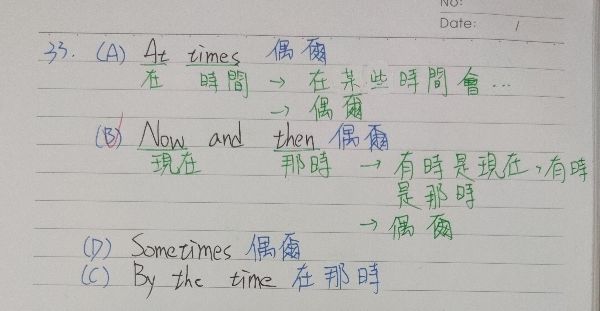 No:
Date: /
33. (A) At times 偶爾
在 時間 → 在某些時間會…
→ 偶爾
(B) Now and then 偶爾
現在 那時 → 有時是現在,有時
是那時
→ 偶爾
(D) Sometimes 偶爾
(C) By the time 在那時